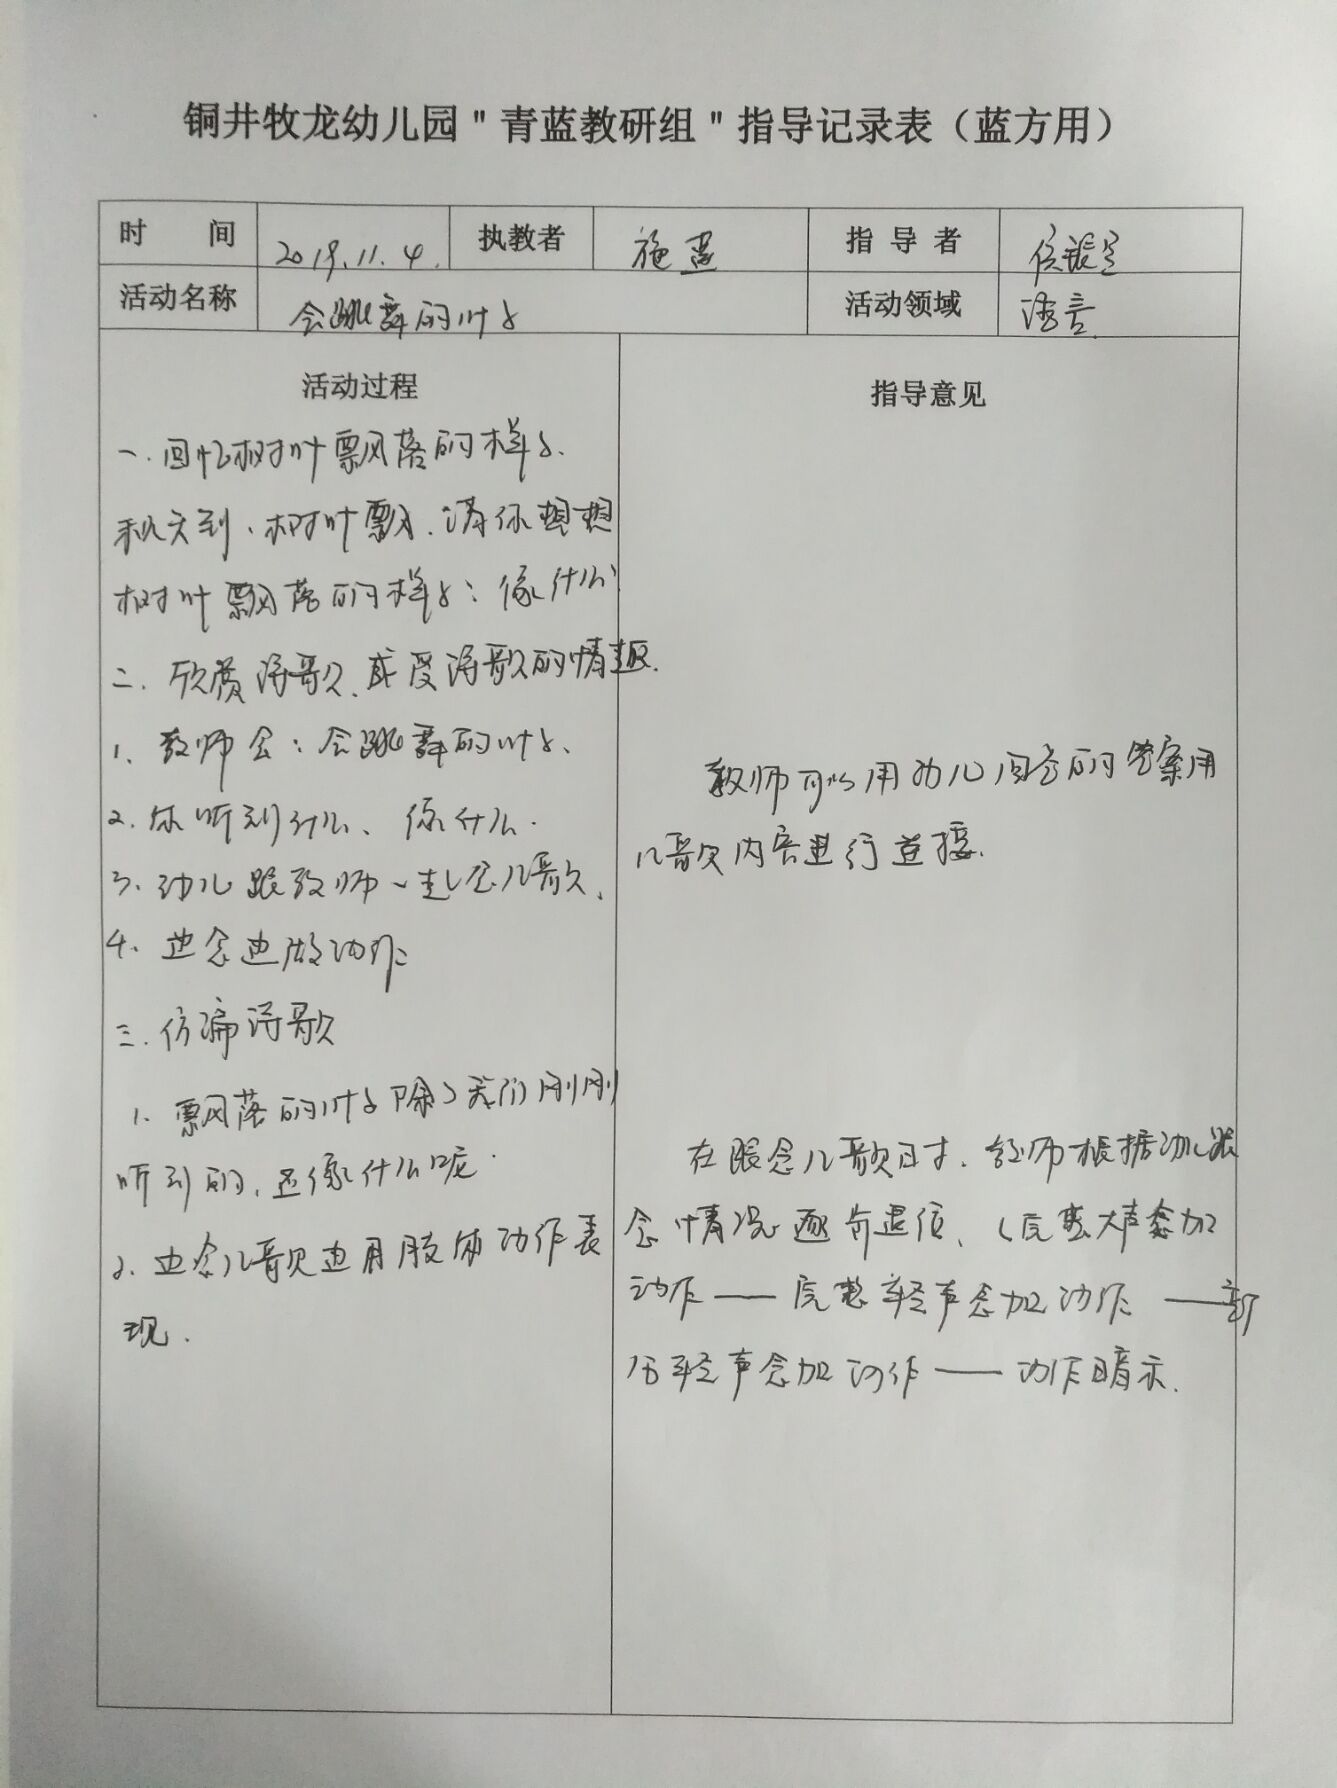 铜井牧龙幼儿园"青蓝教研组"指导记录表（蓝方用）
时 间 2019.11.4. 执教者 施 指 导 者 侯
活动名称 会跳舞的叶子 活动领域 语言
活动过程
一.回忆树叶飘落的样子.
秋天到.树叶飘.请你想想
树叶飘落的样子：像什么
二.欣赏诗歌、感受诗歌的情趣.
1.教师念：会跳舞的叶子.
2.你听到什么、像什么.
3.幼儿跟教师一起念儿歌.
4.边念边做动作
三.仿编诗歌
1.飘落的叶子除了我们刚刚
听到的,还像什么呢.
2.边念儿歌边用肢体动作表
现.
指导意见
教师可以用幼儿回答的答案用
儿歌内容进行连接.
在跟念儿歌时.教师根据幼儿跟
念情况逐句退位、（完整大声念加
动作——完整轻声念加动作——部
分轻声念加动作——动作暗示.